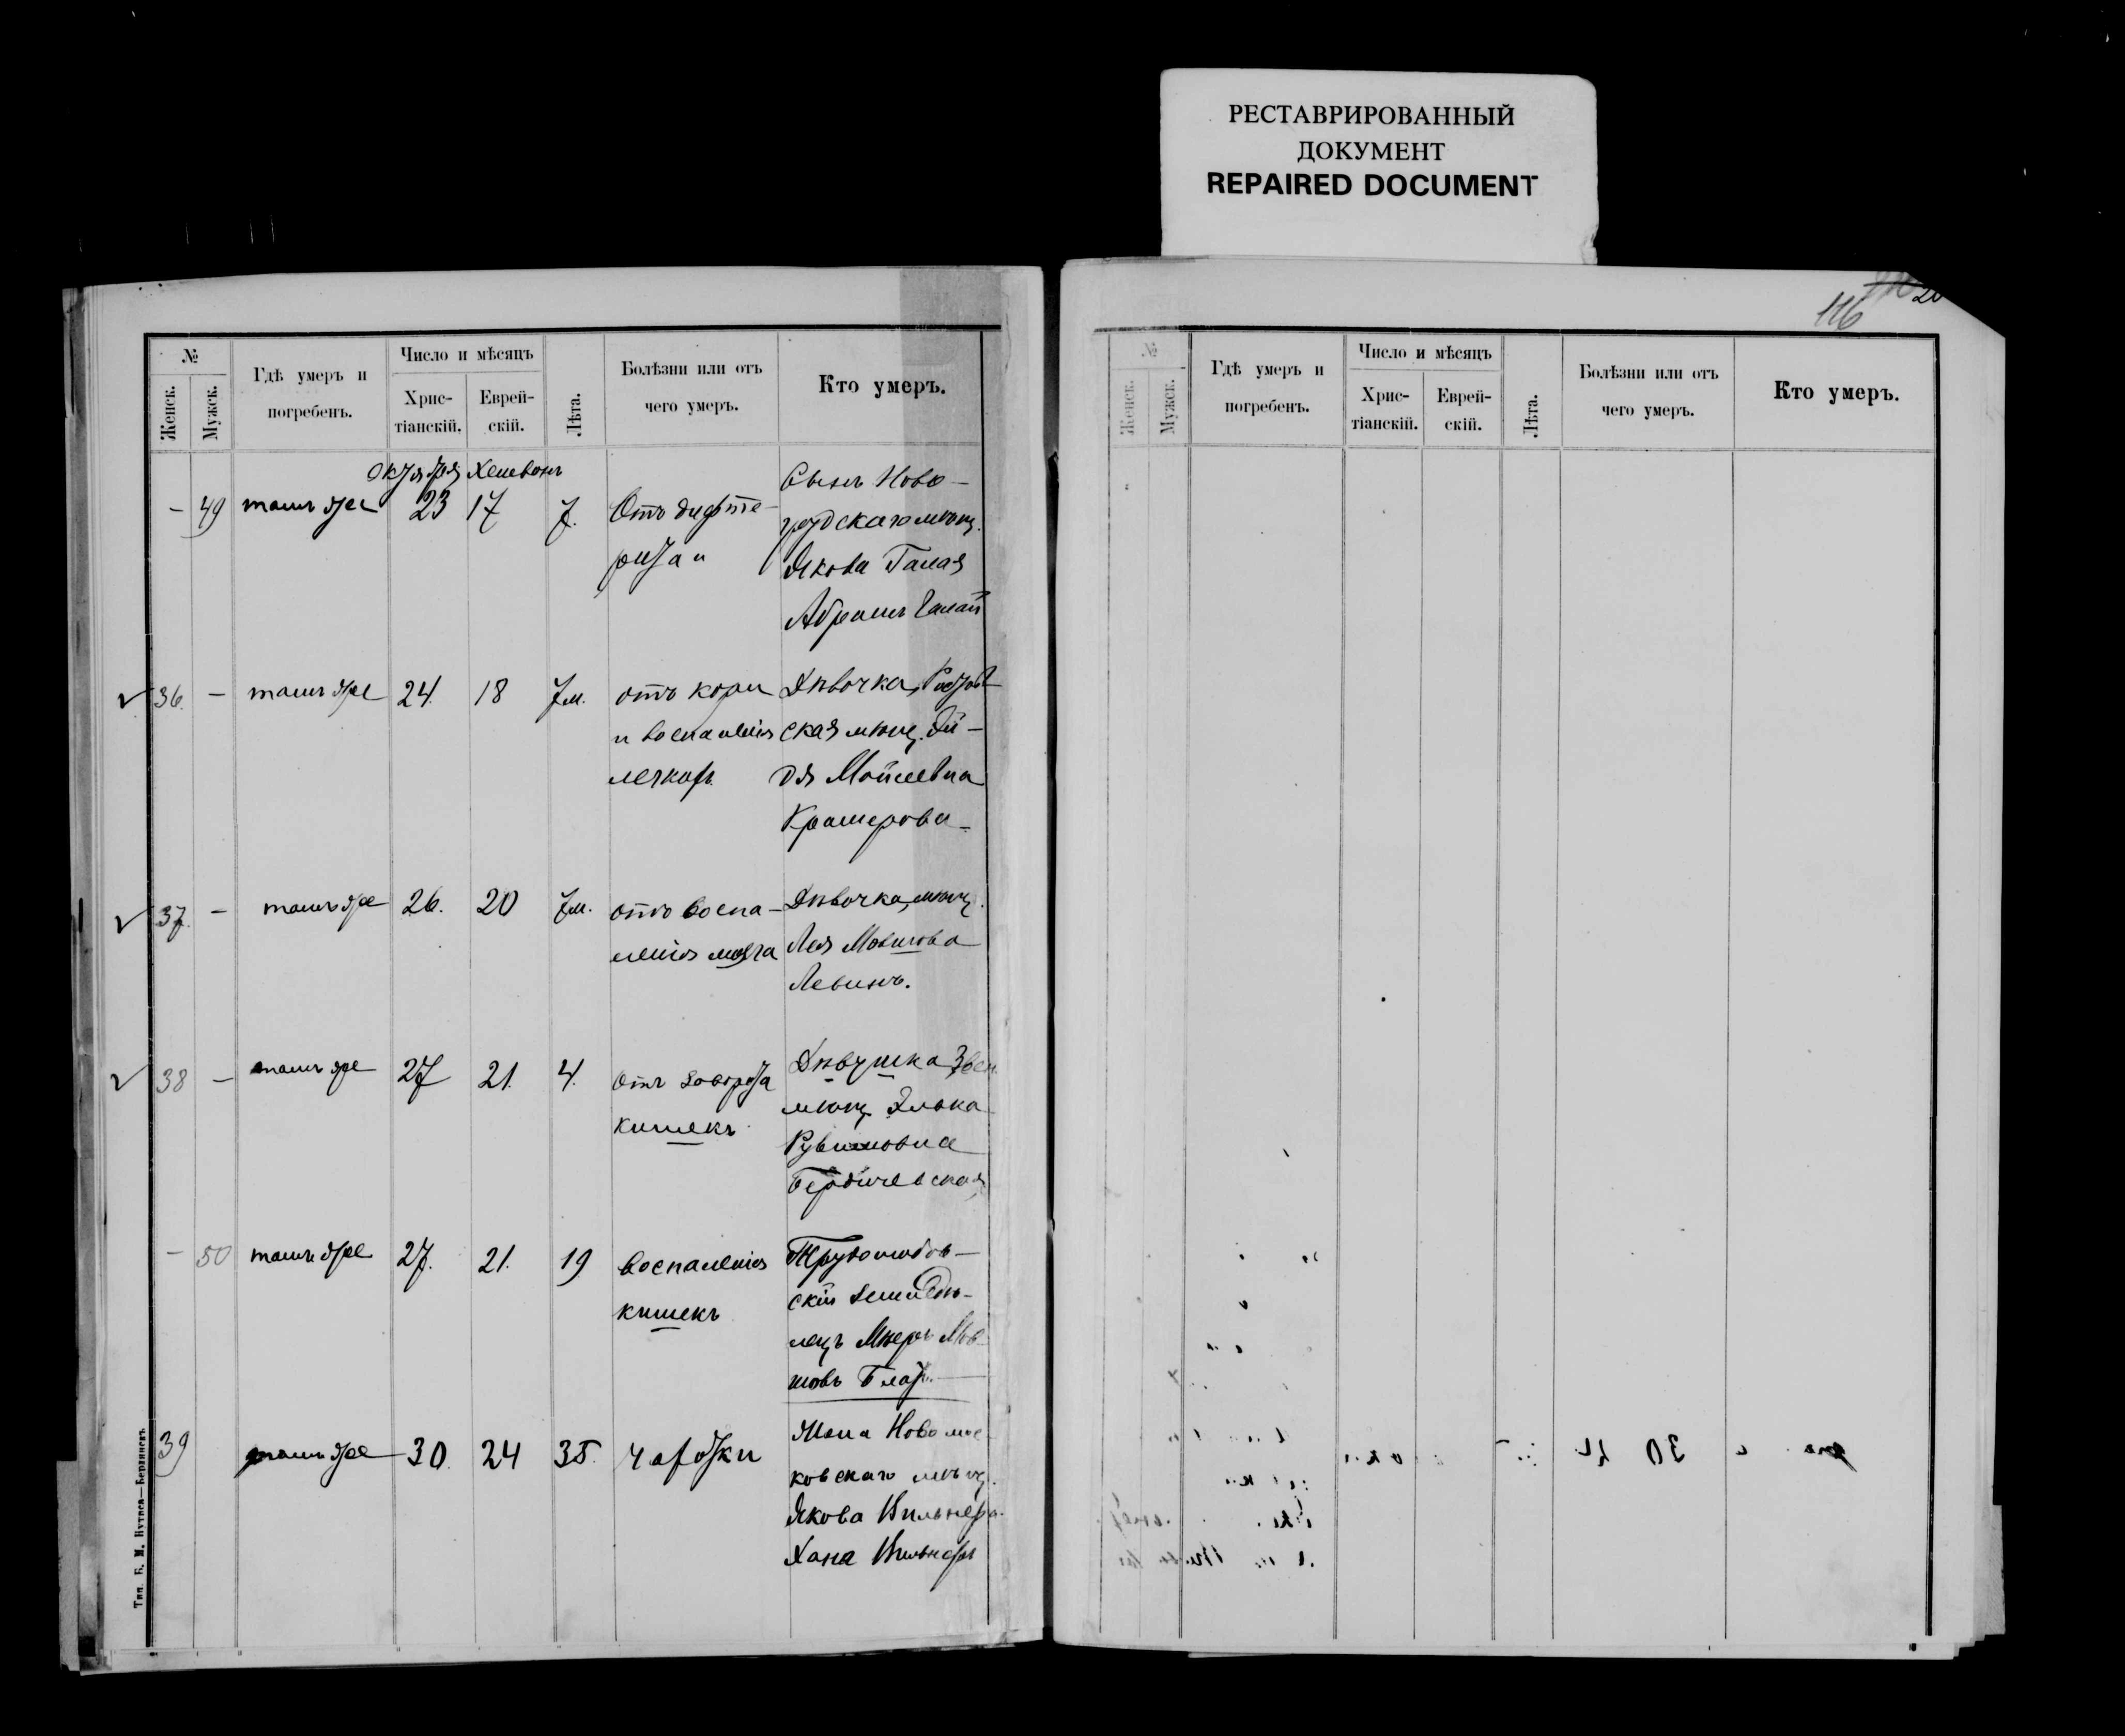 РЕСТАВРИРОВАННЫЙ
ДОКУМЕНТ
REPAIRED DOCUMENT
№
Женск.
Мужск.
Гдѣ умеръ и
погребенъ.
Число и мѣсяцъ
Хрис-
тіанскій.
Еврей-
скій.
Лѣта.
Болѣзни или отъ
чего умеръ.
Кто умеръ.
Октября Хешвонъ
– 49 тамъ же 23 17 7. Отъ дифте-
рита и
Сынъ Ново-
мѣщ.
Якова Галая
Абрамъ Галай
36. – тамъ же 24. 18 7м. отъ кори
и воспаленія
легкихъ
Дѣвочка, Ростов
ская мѣщ.
Мойсеевна
Крамерова
37. – тамъ же 26. 20 7м. отъ воспа-
ленія мозга
Дѣвочка, мѣщ.
Лея Мовшова
Левинъ.
38 – тамъ же 27 21. 4. отъ заворота
кишекъ
Дѣвушка
мѣщ. Элька
Рувимовна
Бердичевская
– 50 тамъ же 27. 21. 19 воспаленія
кишекъ
Трудолюбов-
скій
лецъ Мееръ Мов
шовъ
39 тамъ же 30. 24 35. чахотки
Жена Новомос
ковскаго мѣщ.
Якова Вильнера
Хана Вильнеръ
Тип. Б. М. Кутаса—Бердянскъ
116
№.
Женск.
Мужск.
Гдѣ умеръ и
погребенъ.
Число и мѣсяцъ
Хрис-
тіанскій.
Еврей-
скій.
Лѣта.
Болѣзни или отъ
чего умеръ.
Кто умеръ.